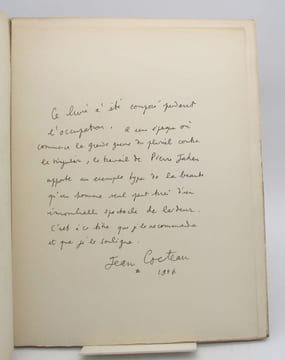 Ce livre a été composé pendant
l'occupation. à une époque où
commence la grande guerre du pluriel contre
le singulier, le travail de Pierre Jahan
apporte un exemple type de la beauté
qu'un homme seul peut tirer d'un
spectacle de laideur.
C'est à ce titre que je le recommande
et que je le souligne.
Jean Cocteau
* 1946